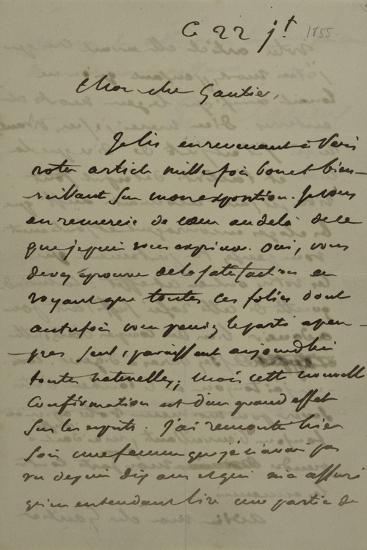 Ce 22 jt 1855.
Mon cher Gautier,
Je lis en revenant à Paris
votre article mille fois bon et bien-
veillant sur mon exposition. Je vous
en remercie de cœur au delà de ce
que je puis vous exprimer. Oui, vous
devez éprouver de la satisfaction en
voyant que toutes ces folies dont
autrefois vous preniez le parti à peu-
près seul, paraissent aujourd'hui
toutes naturelles, mais cette nouvelle
confirmation est d'un grand effet
sur les esprits. J'ai rencontré hier
soir une femme que je n'avais pas
vu depuis dix ans et qui m'a assuré
qu'en entendant lire une partie de